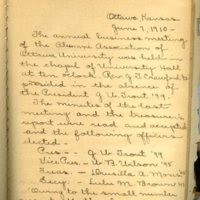 Ottawa, Kansas.
June 7, 1910 -
The annual business meeting
of the Alumni Association of
Ottawa University was held in
the chapel of University Hall
at ten o'clock. Rev. J. T. Crawford
presided in the absence of
the President, J. U. Trout '99.
The minutes of the last
meeting and the treasurer's
report were read and accepted
and the following officers
elected -
Pres. - J. U. Trout '99
Vice Pres. - W. B. Wilson '95
Treas. - Drusilla A. Moris
Secy. - Lulu M. Brown
Owing to the small number